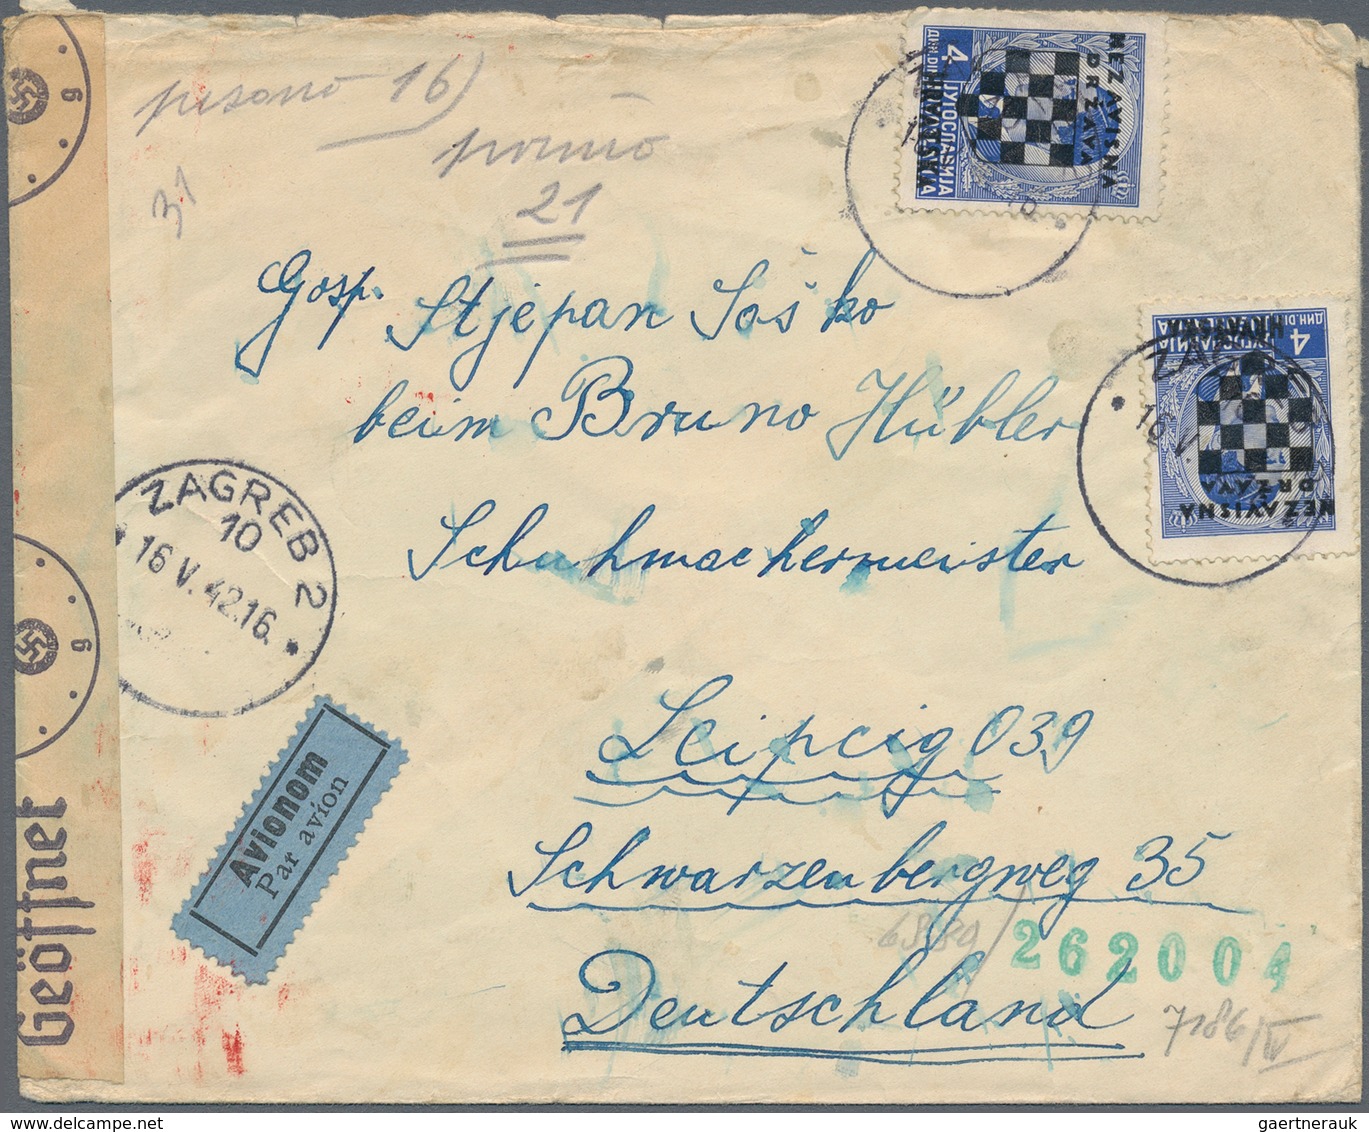 pisano 16)
primio
21
31
4 ДИН. DIN.
ЈУГОСЛАВИЈА
NEZAVISNA
DRŽAVA
HRVATSKA
Gosp. Stjepan Soško
beim Bruno Hübler
Schuhmachermeister
4 ДИН. DIN.
ЈУГОСЛАВИЈА
HRVATSKA
NEZAVISNA
DRŽAVA
ZAGREB
16 V.
ZAGREB 2
10
16 V. 42.16.
Avionom
Par avion
Leipzig O39
Schwarzenbergweg 35
262004
Deutschland
7186/IV
Geöffnet
g
g
gaertnerauk.com